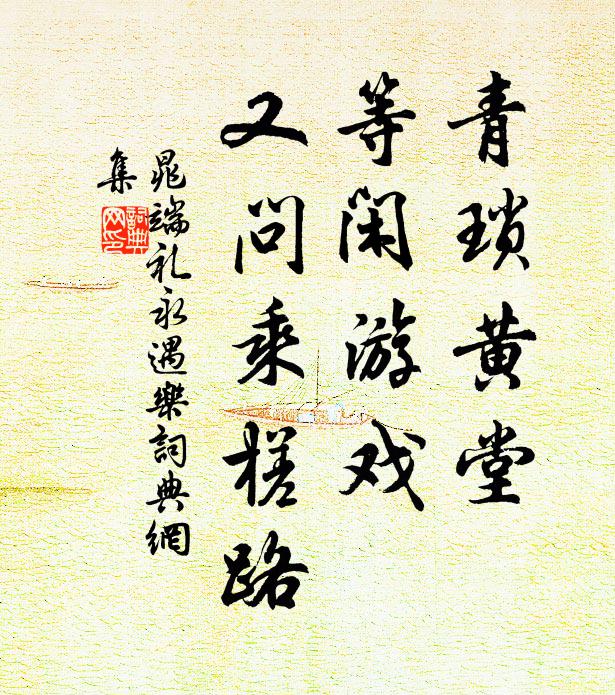 青琐黄堂
等闲游戏
又问乘槎路
晁端礼永遇樂詞典網
集
詞典网印